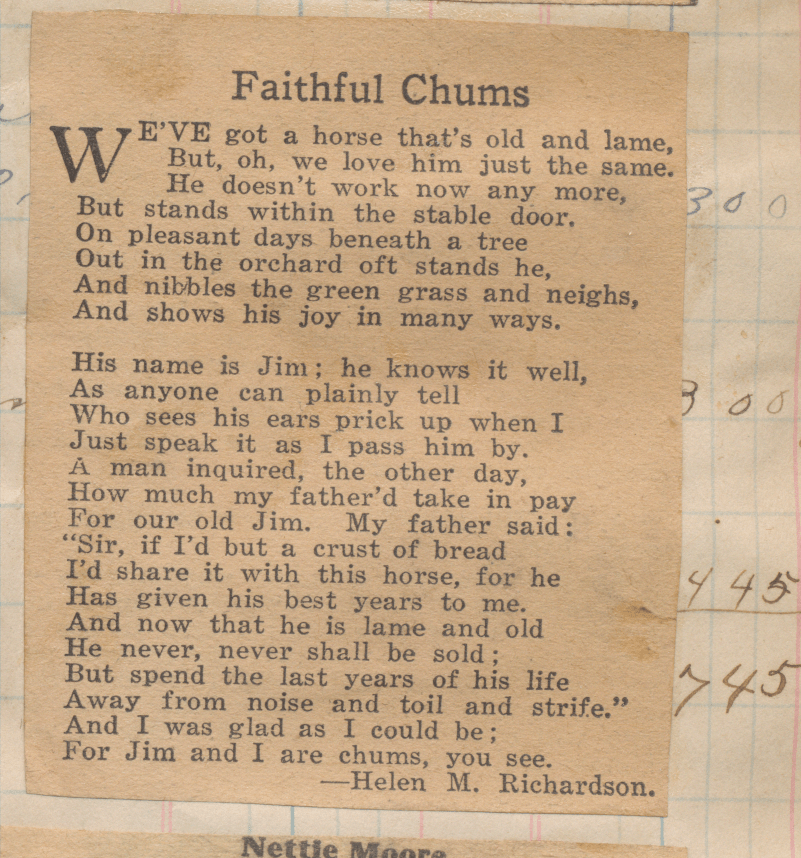 Faithful Chums
WE'VE got a horse that's old and lame,
But, oh, we love him just the same.
He doesn't work now any more,
But stands within the stable door.
On pleasant days beneath a tree
Out in the orchard oft stands he,
And nibbles the green grass and neighs,
And shows his joy in many ways.
His name is Jim; he knows it well,
As anyone can plainly tell
Who sees his ears prick up when I
Just speak it as I pass him by.
A man inquired, the other day,
How much my father'd take in pay
For our old Jim. My father said:
“Sir, if I'd but a crust of bread
I'd share it with this horse, for he
Has given his best years to me.
And now that he is lame and old
He never, never shall be sold;
But spend the last years of his life
Away from noise and toil and strife.”
And I was glad as I could be;
For Jim and I are chums, you see.
—Helen M. Richardson.
300
300
445
745
Nettie Moore